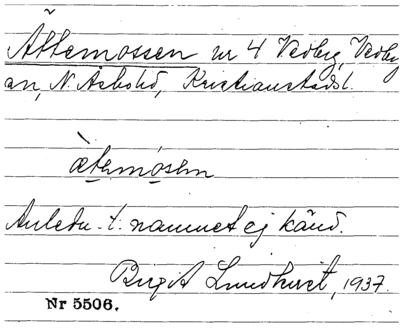 Ättemossen nr 4 Vedby, Vedby
sn, N. Åsbohd, Kristianstads l.
ätemosen
Anledn. t. namnet ej känd.
Birgit Lundkvist, 1937.
Nr 5506.